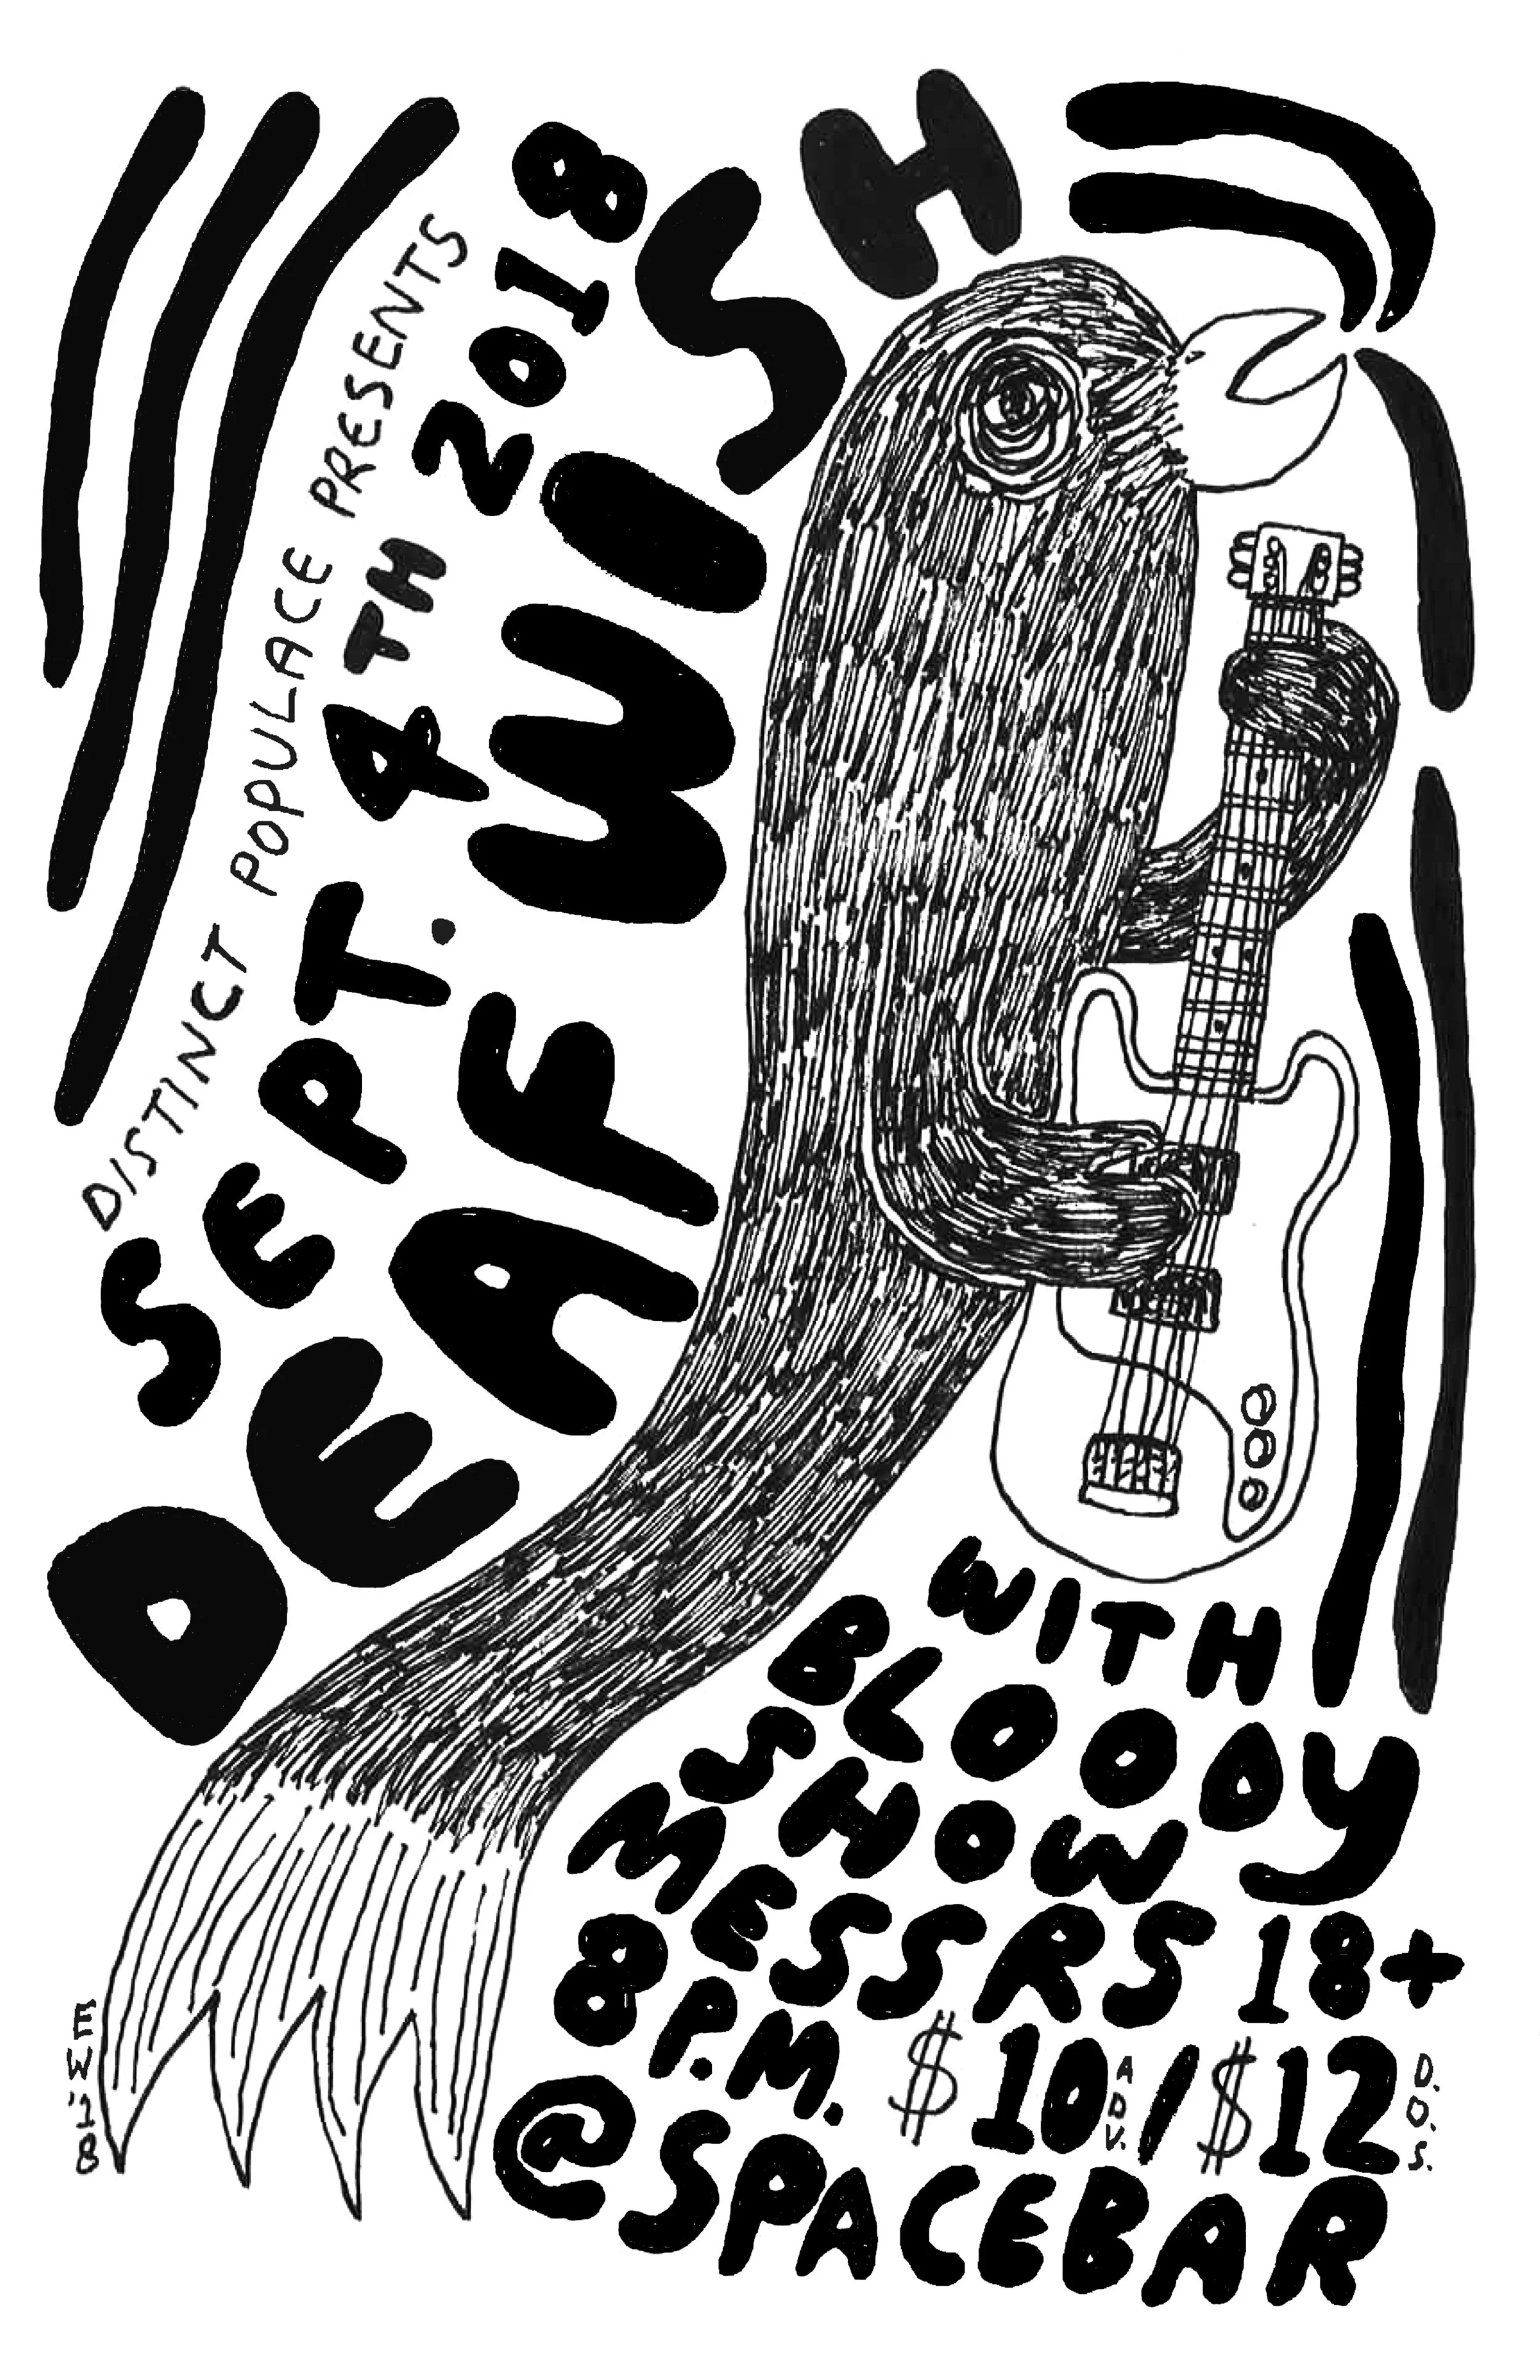 DISTINCT POPULACE PRESENTS
SEPT. 4TH 2018
DEAF WISH
WITH
BLOODY
SHOW
MESSRS 18+
8 P.M. $10 ADV. / $12 D.O.S.
@ SPACEBAR
EW '18